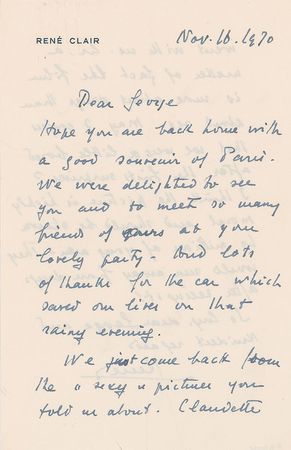 RENÉ CLAIR
Nov. 16. 1970
Dear George
Hope you are back home with
a good souvenir of Paris.
We were delighted to see
you and to meet so many
friends of yours at your
lovely party. And lots
of thanks for the car which
saved our lives on that
rainy evening.
We just come back from
the "sexy" pictures you
told us about. Claudette